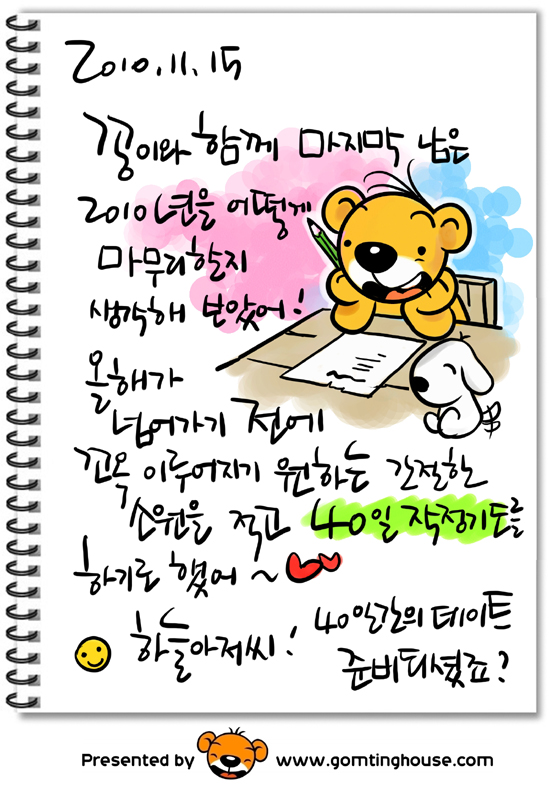 2010.11.15
꽁이와 함께 마지막 남은
2010년을 어떻게
마무리할지
생각해 보았어!
올해가
넘어가기 전에
꼬옥 이루어지기 원하는 간절한
소원을 적고 40일 작정기도를
하기로 했어~
하늘아저씨!
40일간의 데이트
준비되셨죠?
Presented by www.gomtinghouse.com